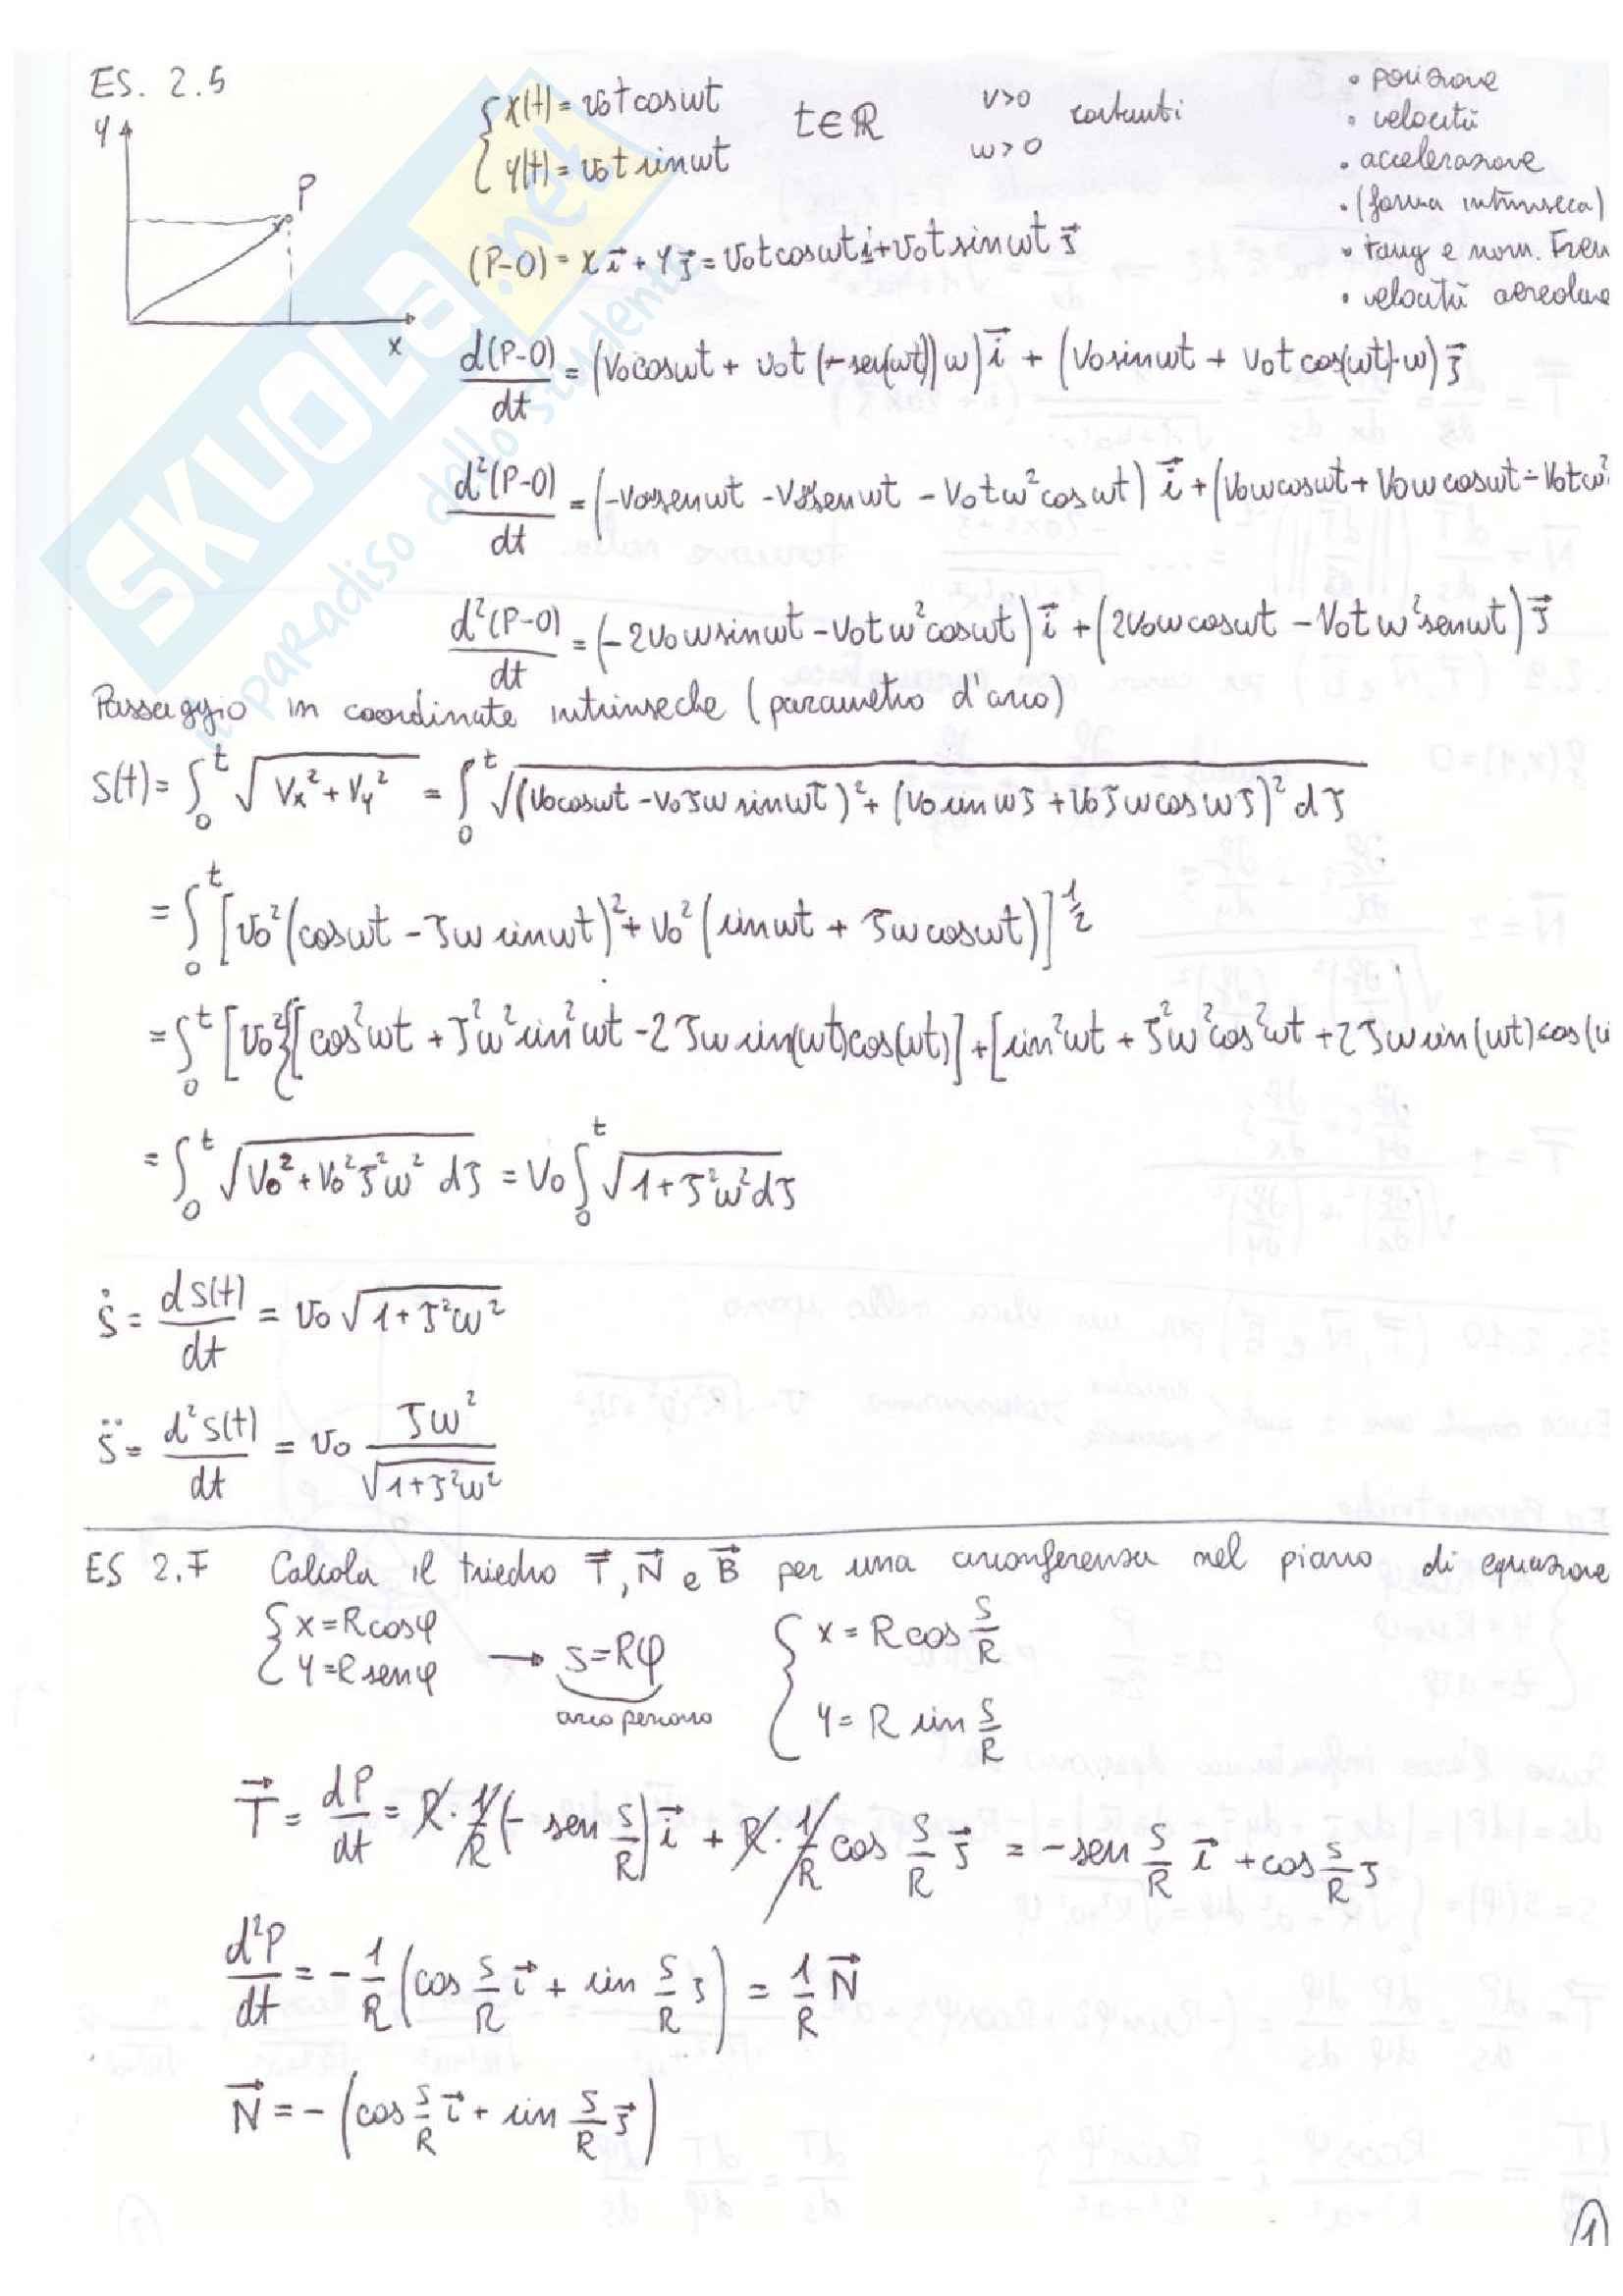 ES. 2.5
y
P
x
{x(t) = v₀t cosωt
{y(t) = v₀t sinωt
t∈ℝ
v>0
ω>0
costanti
• posizione
• velocità
• accelerazione
• (forma intrinseca)
• tang e norm. Fren
• velocità aereolare
(P-O) = x i⃗ + y j⃗ = v₀t cosωt i + v₀t sinωt j⃗
d(P-O)/dt = (v₀cosωt + v₀t (-sen(ωt)) ω) i⃗ + (v₀sinωt + v₀t cos(ωt)·ω) j⃗
d²(P-O)/dt = (-v₀ωsenωt - v₀ωsenωt - v₀tω²cosωt) i⃗ + (v₀ωcosωt + v₀ωcosωt - v₀tω²
d²(P-O)/dt = (-2v₀ωsinωt - v₀tω²cosωt) i⃗ + (2v₀ωcosωt - v₀tω²senωt) j⃗
Passaggio in coordinate intrinseche (parametro d'arco)
S(t) = ∫₀ᵗ √(Vx² + Vy²) = ∫₀ᵗ √((v₀cosωt - v₀τω sinωτ)² + (v₀sinωτ + v₀τωcosωτ)²) dτ
= ∫₀ᵗ [v₀²(cosωt - τω sinωt)² + v₀²(sinωt + τωcosωt)]^½
= ∫₀ᵗ [v₀²{[cos²ωt + τ²ω²sin²ωt - 2τω sin(ωt)cos(ωt)] + [sin²ωt + τ²ω²cos²ωt + 2τω sin(ωt)cos(ω
= ∫₀ᵗ √(v₀² + v₀²τ²ω² dτ) = v₀ ∫₀ᵗ √(1 + τ²ω² dτ)
ṡ = dS(t)/dt = v₀ √(1+τ²ω²)
s̈ = d²S(t)/dt = v₀ τω²/√(1+τ²ω²)
ES 2.7 Calcola il triedro T⃗, N⃗ e B⃗ per una circonferenza nel piano di equazione
{x = Rcosφ
{y = Rsenφ
→ s = Rφ
arco percorso
{x = R cos s/R
{y = R sin s/R
T⃗ = dP/dt = R·1/R (-sen s/R) i⃗ + R·1/R cos s/R j⃗ = -sen s/R i⃗ + cos s/R j
d²P/dt = -1/R (cos s/R i⃗ + sin s/R j) = 1/R N⃗
N⃗ = -(cos s/R i⃗ + sin s/R j⃗)
1
SKUOLA.net
il paradiso dello studente